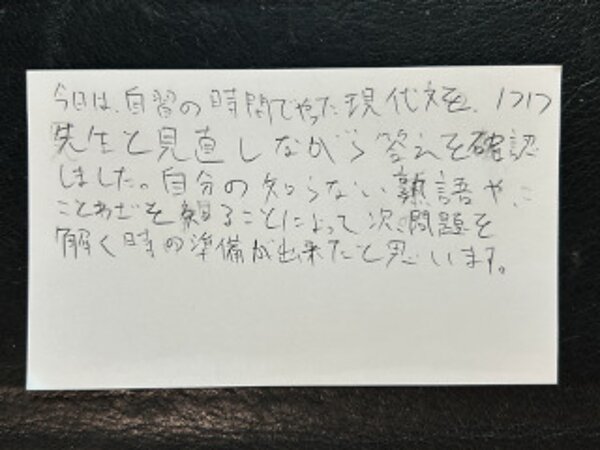 今日は、自習の時間でやった現代文を、1つ1つ
先生と見直しながら答えを確認
しました。自分の知らない熟語や、
ことわざを知ることによって次、問題を
解く時の準備が出来たと思います。